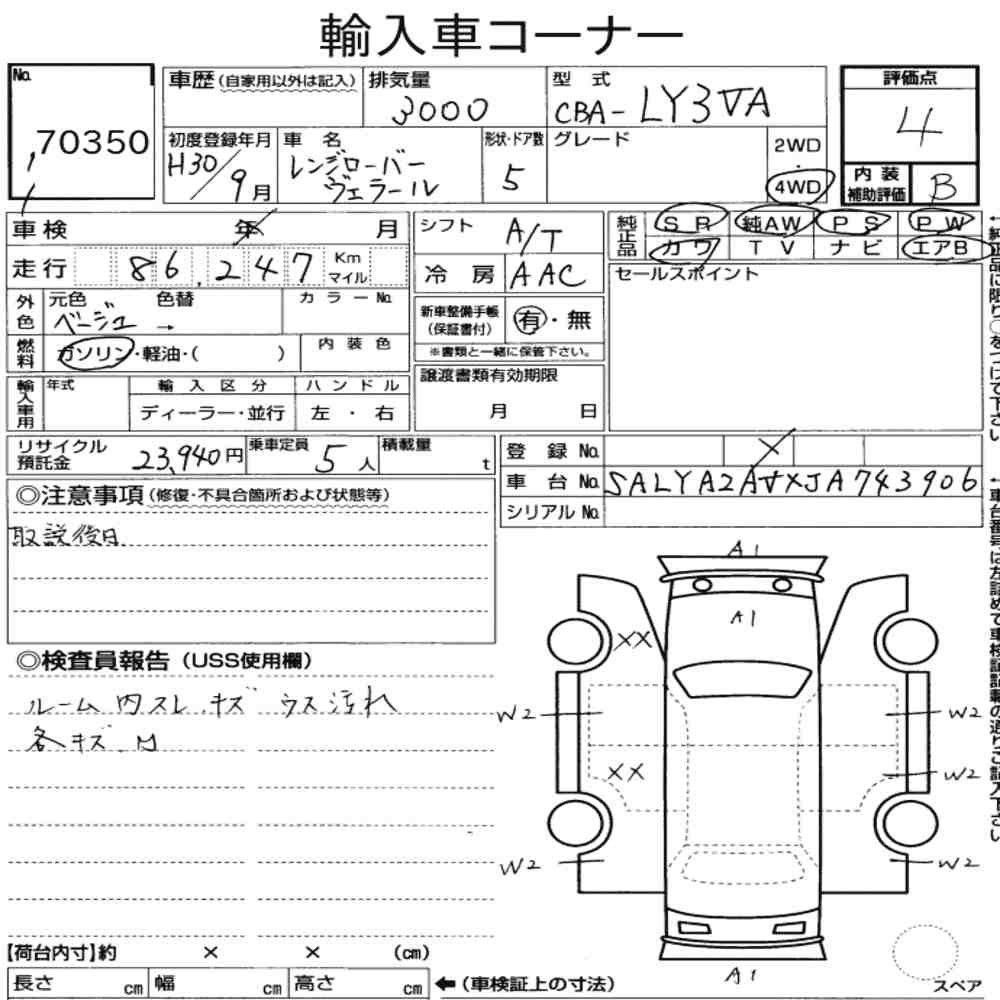 輸入車コーナー
No.
70350
車歴(自家用以外は記入)
排気量
3000
型 式
CBA-LY3VA
評価点
4
初度登録年月
H30/9月
車 名
レンジローバー
ヴェラール
形状・ドア数
5
グレード
2WD
・
4WD
内 装
補助評価
B
車検 年 月
シフト
A/T
純正品
SR 純AW PS PW
カワ TV ナビ エアB
走行 86,247 Km
マイル
冷 房
AAC
セールスポイント
外色
元色
ベージュ →
色替
カラーNo.
新車整備手帳
(保証書付)
有・無
※書類と一緒に保管下さい。
燃料
ガソリン・軽油・( )
内 装 色
譲渡書類有効期限
月 日
輸入車用
年式
輸 入 区 分
ディーラー・並行
ハ ン ド ル
左 ・ 右
リサイクル
預託金
23,940円
乗車定員
5人
積載量
t
登 録 No.
車 台 No. SALYA2AVXJA743906
シリアル No.
◎注意事項(修復・不具合箇所および状態等)
取説後日
◎検査員報告(USS使用欄)
ルーム内スレ.キズ ウス汚れ
各キズ
A1
A1
XX
W2
W2
XX
W2
W2
W2
A1
スペア
【荷台内寸】約 × × (cm)
長さ cm 幅 cm 高さ cm
←(車検証上の寸法)
←純正品に限り○をつけて下さい
←車台番号は左詰めで車検証記載の通りご記入下さい